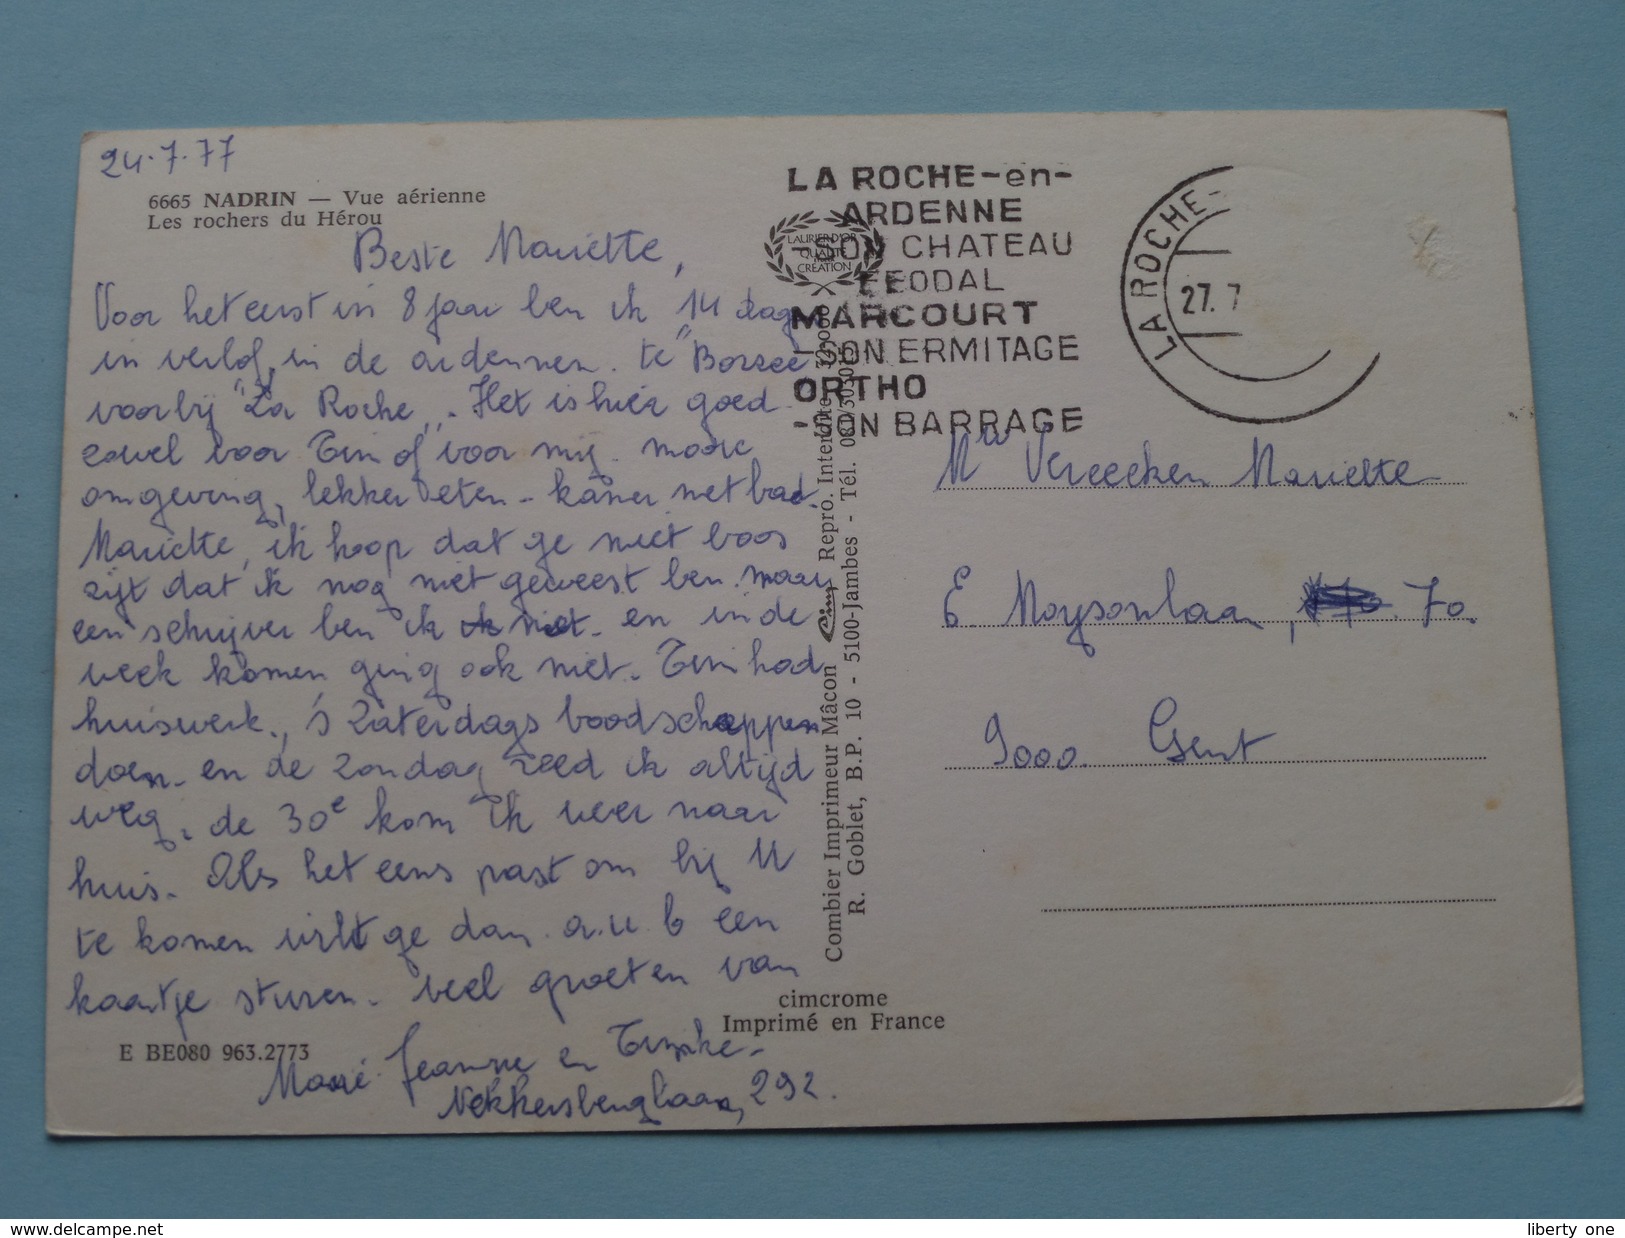 24.7.77
6665 NADRIN — Vue aérienne
Les rochers du Hérou
Beste Mariette,
Voor het eerst in 8 jaar ben ik 14 dag
in verlof, in de ardennen. te "Borzée
voorbij "La Roche". Het is hier goed
zowel voor Tini of voor mij. mooie
omgeving, lekker eten - kamer met bad.
Mariette, ik hoop dat ge niet boos
zijt dat ik nog niet geweest ben. maar
een schrijver ben ik niet. en in de
week komen ging ook niet. Tini had
huiswerk., 's Zaterdags boodschappen
doen. en de zondag reed ik altijd
weg. de 30e kom ik weer naar
huis. Als het eens past om bij U
te komen wilt ge dan a.u.b een
kaartje sturen. veel groeten van
Marie Jeanne en
Nekkersberglaan, 292.
E BE080 963.2773
LAURIER D'OR
QUALITÉ
CRÉATION
Combier Imprimeur Mâcon Cim Repro. Interdite
R. Goblet, B.P. 10 - 5100-Jambes - Tél.
cimcrome
Imprimé en France
LA ROCHE-en-
ARDENNE
-SON CHATEAU
FEODAL
MARCOURT
-SON ERMITAGE
ORTHO
-SON BARRAGE
LA ROCHE-
27. 7
Mw Vereecken Mariette
E Moysonlaan, 70.
9000 Gent
www.delcampe.net
liberty one